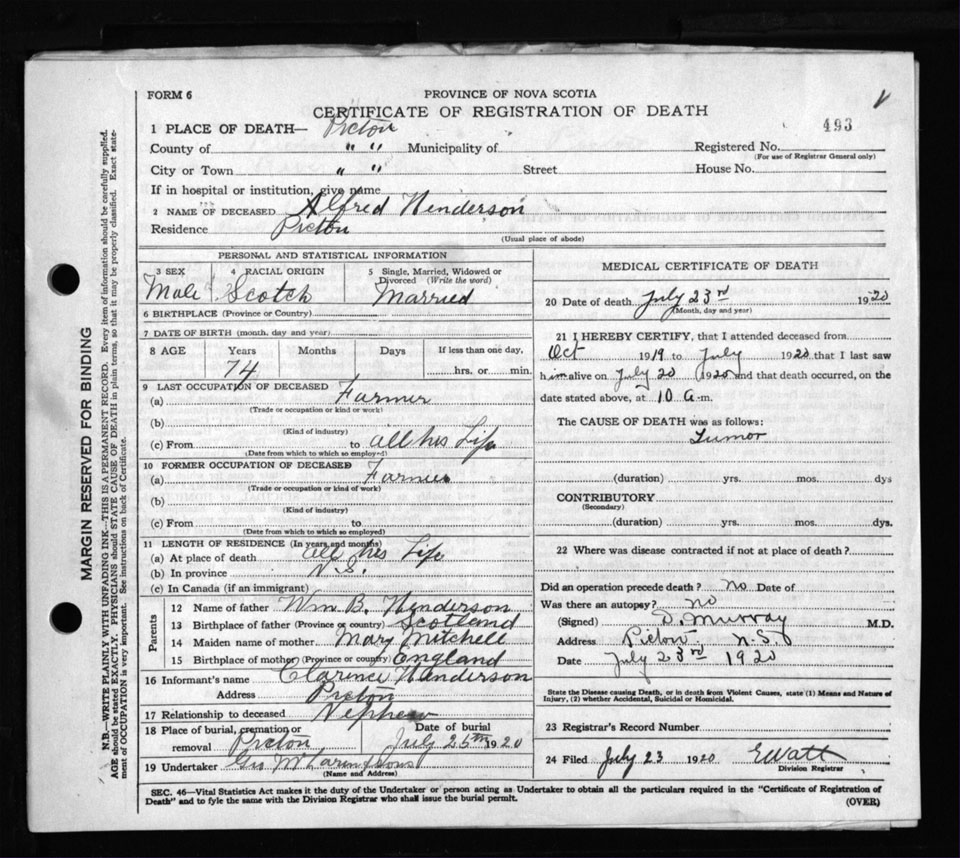 FORM 6
PROVINCE OF NOVA SCOTIA
CERTIFICATE OF REGISTRATION OF DEATH
493
1 PLACE OF DEATH— Pictou
County of " " Municipality of Registered No.
(For use of Registrar General only)
City or Town " " Street House No.
If in hospital or institution, give name
2 NAME OF DECEASED Alfred Henderson
Residence Pictou
(Usual place of abode)
PERSONAL AND STATISTICAL INFORMATION
3 SEX 4 RACIAL ORIGIN 5 Single, Married, Widowed or Divorced (Write the word)
Male Scotch Married
6 BIRTHPLACE (Province or Country)
7 DATE OF BIRTH (month, day and year)
8 AGE Years Months Days If less than one day,
74 hrs. or min.
9 LAST OCCUPATION OF DECEASED
(a) Farmer
(Trade or occupation or kind or work)
(b)
(Kind of industry)
(c) From to all his Life
(Date from which to which so employed)
10 FORMER OCCUPATION OF DECEASED
(a) Farmer
(Trade or occupation or kind of work)
(b)
(Kind of industry)
(c) From to
(Date from which to which so employed)
11 LENGTH OF RESIDENCE (In years and months)
(a) At place of death all his Life
(b) In province N.S.
(c) In Canada (if an immigrant)
Parents
12 Name of father Wm B. Henderson
13 Birthplace of father (Province or country) Scotland
14 Maiden name of mother Mary Mitchell
15 Birthplace of mother (Province or country) England
16 Informant's name Clarence Henderson
Address Pictou
17 Relationship to deceased Nephew
18 Place of burial, cremation or removal Pictou Date of burial July 25th 1920
19 Undertaker Geo Sons
(Name and Address)
MEDICAL CERTIFICATE OF DEATH
20 Date of death July 23rd 1920
(Month, day and year)
21 I HEREBY CERTIFY, that I attended deceased from
Oct 1919 to July 1920 that I last saw
him alive on July 20 1920 and that death occurred, on the
date stated above, at 10 a.m.
The CAUSE OF DEATH was as follows:
Tumor
(duration) yrs. mos. dys
CONTRIBUTORY
(Secondary)
(duration) yrs. mos. dys.
22 Where was disease contracted if not at place of death?
Did an operation precede death? no Date of
Was there an autopsy? no
(Signed) D. Murray M.D.
Address Pictou N.S.
Date July 23rd 1920
State the Disease causing Death, or in death from Violent Causes, state (1) Means and Nature of
Injury, (2) whether Accidental, Suicidal or Homicidal.
23 Registrar's Record Number
24 Filed July 23 1920 E Watt
Division Registrar
SEC. 46—Vital Statistics Act makes it the duty of the Undertaker or person acting as Undertaker to obtain all the particulars required in the "Certificate of Registration of
Death" and to fyle the same with the Division Registrar who shall issue the burial permit.
(OVER)
MARGIN RESERVED FOR BINDING
N.B.—WRITE PLAINLY WITH UNFADING INK—THIS IS A PERMANENT RECORD. Every item of information should be carefully supplied.
AGE should be stated EXACTLY. PHYSICIANS should STATE CAUSE OF DEATH in plain terms, so that it may be properly classified. Exact statement
of OCCUPATION is very important. See instructions on back of Certificate.